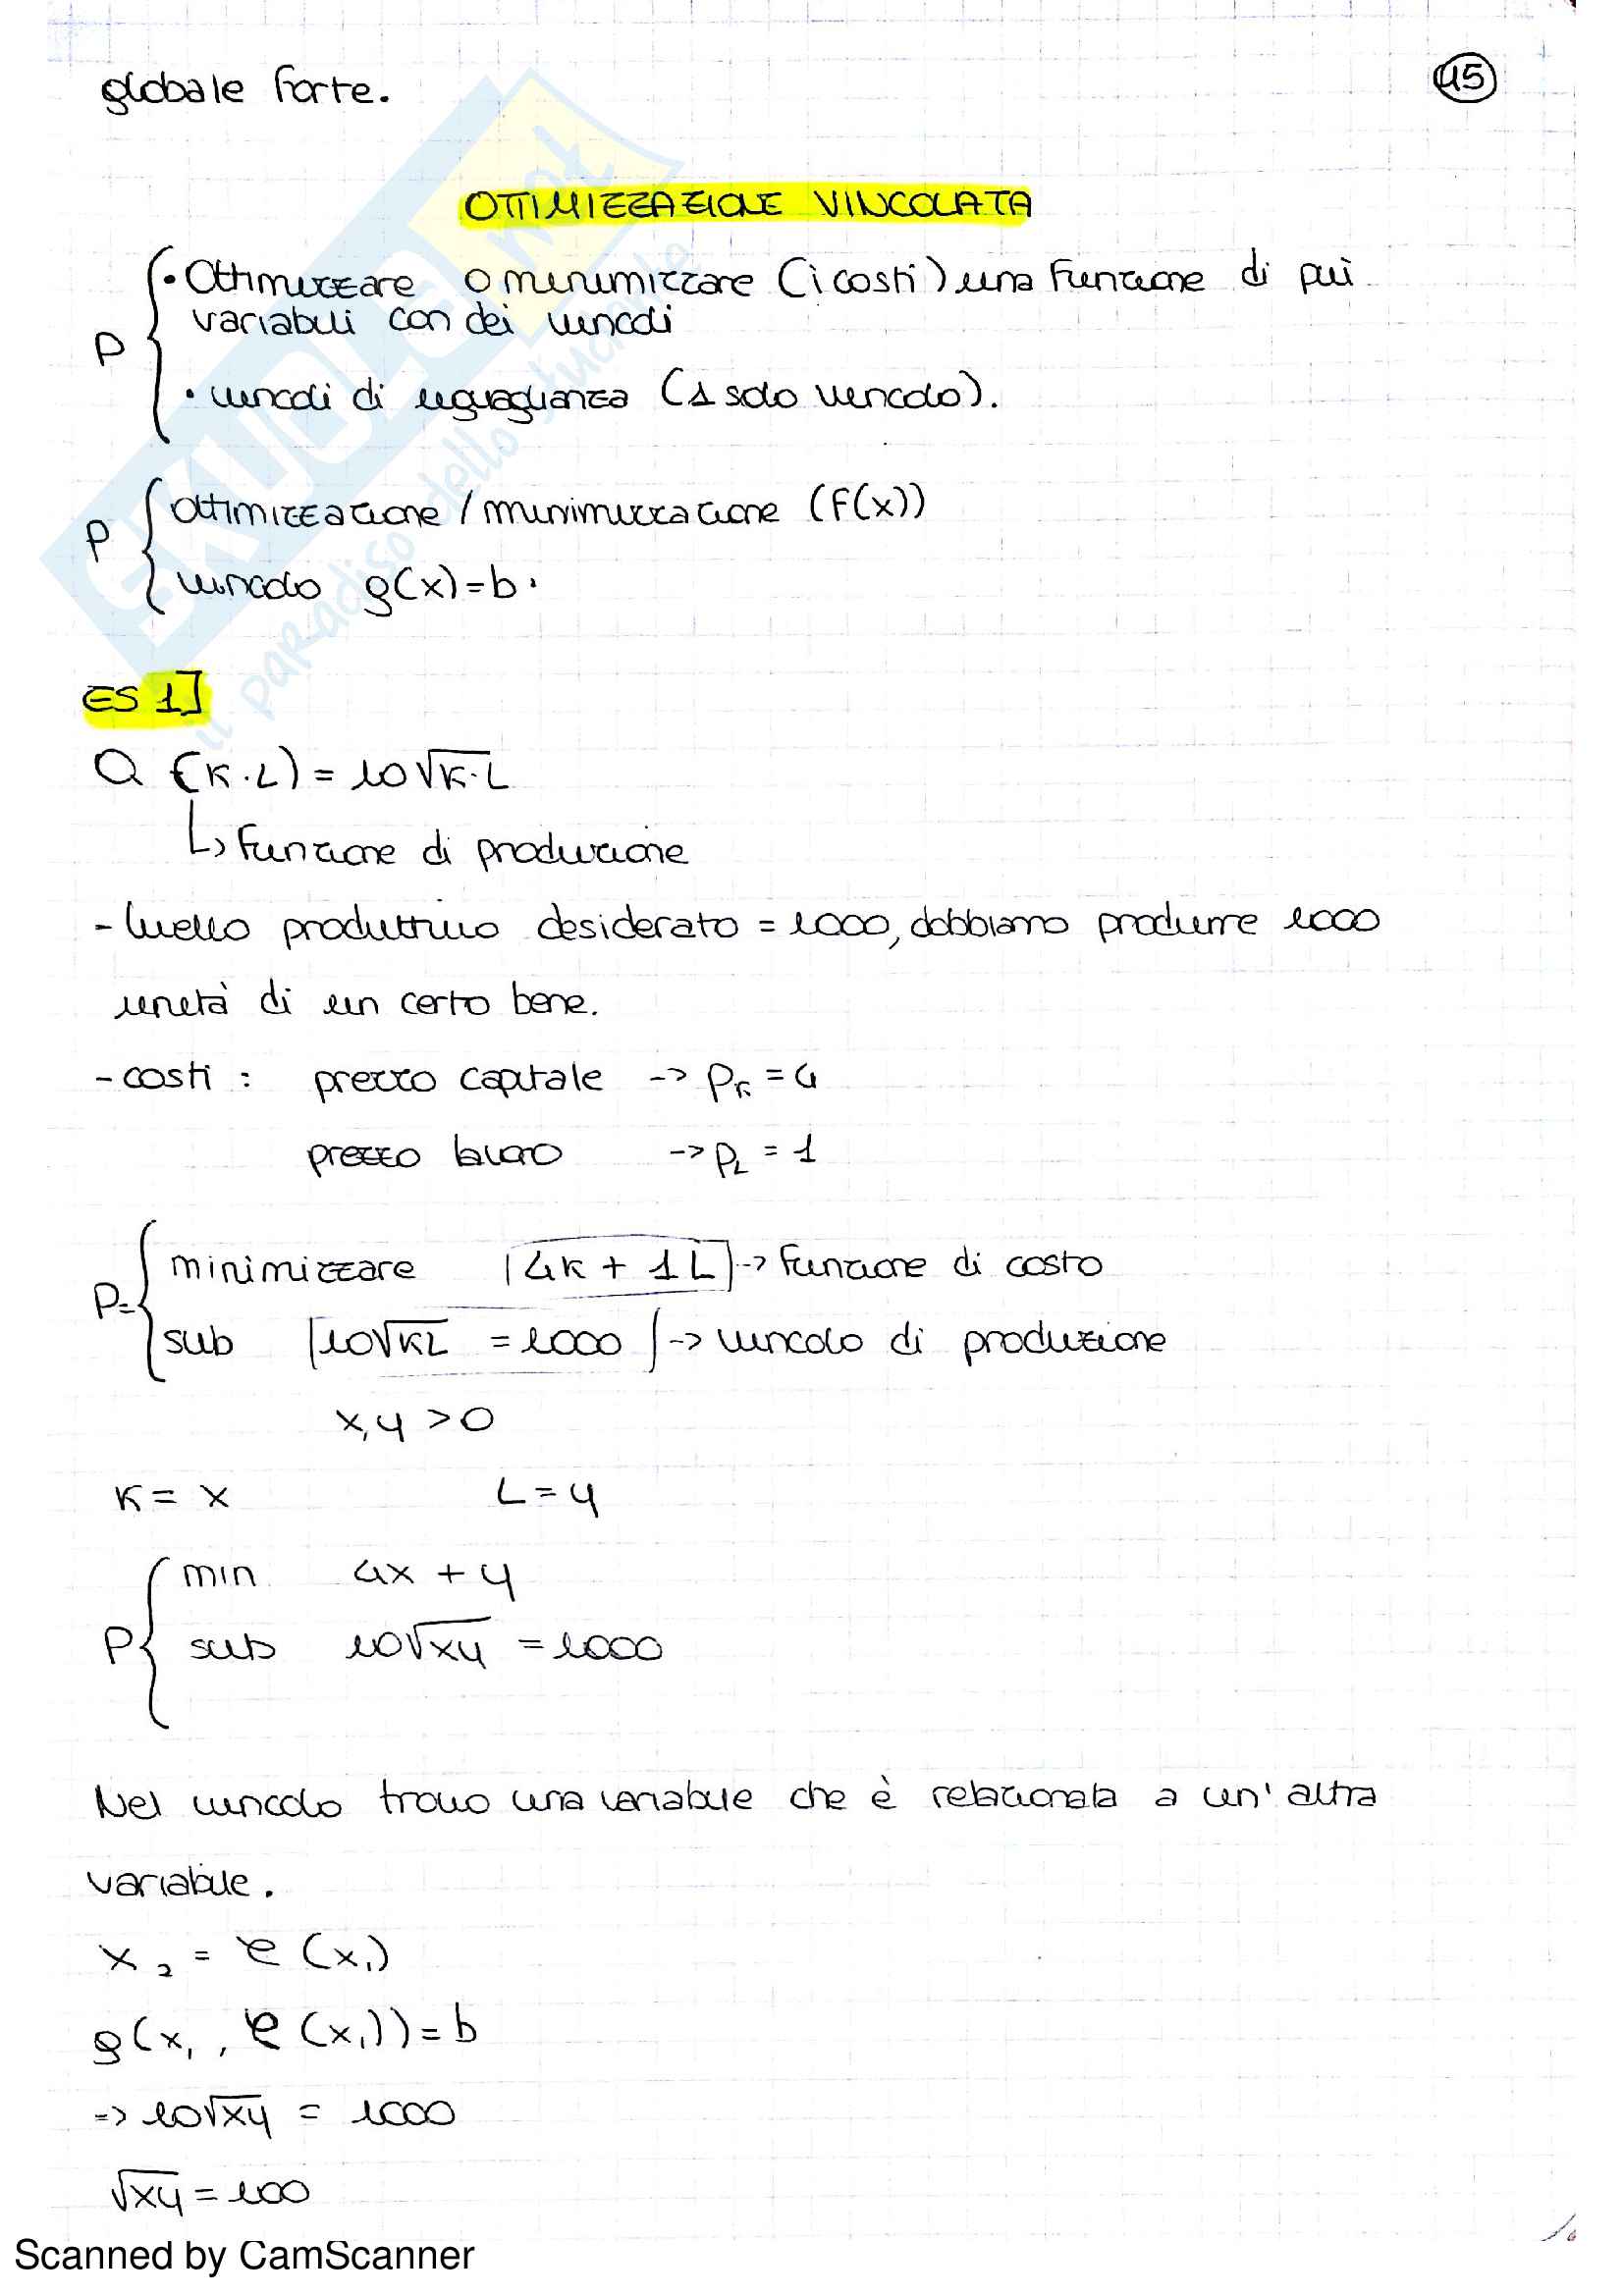 globale forte.
45
OTTIMIZZAZIONE VINCOLATA
P { • Ottimizzare o minimizzare (i costi) una funzione di più
variabili con dei vincoli
• vincoli di uguaglianza (1 solo vincolo).
P { ottimizzazione / minimizzazione (F(x))
vincolo g(x)=b.
ES 1]
Q (K·L) = 10√K·L
↳ funzione di produzione
- livello produttivo desiderato = 1000, dobbiamo produrre 1000
unità di un certo bene.
- costi : prezzo capitale -> PK = 4
prezzo lavoro -> PL = 1
P= { minimizzare |4K + 1L| -> funzione di costo
sub |10√KL = 1000| -> vincolo di produzione
x,y >0
K = x L = y
P { min 4x + y
sub 10√xy = 1000
Nel vincolo trovo una variabile che è relazionata a un' altra
variabile.
x₂ = φ (x₁)
g(x₁, φ (x₁)) = b
=> 10√xy = 1000
√xy = 100
SKUOLA.net
il paradiso dello studente
Scanned by CamScanner